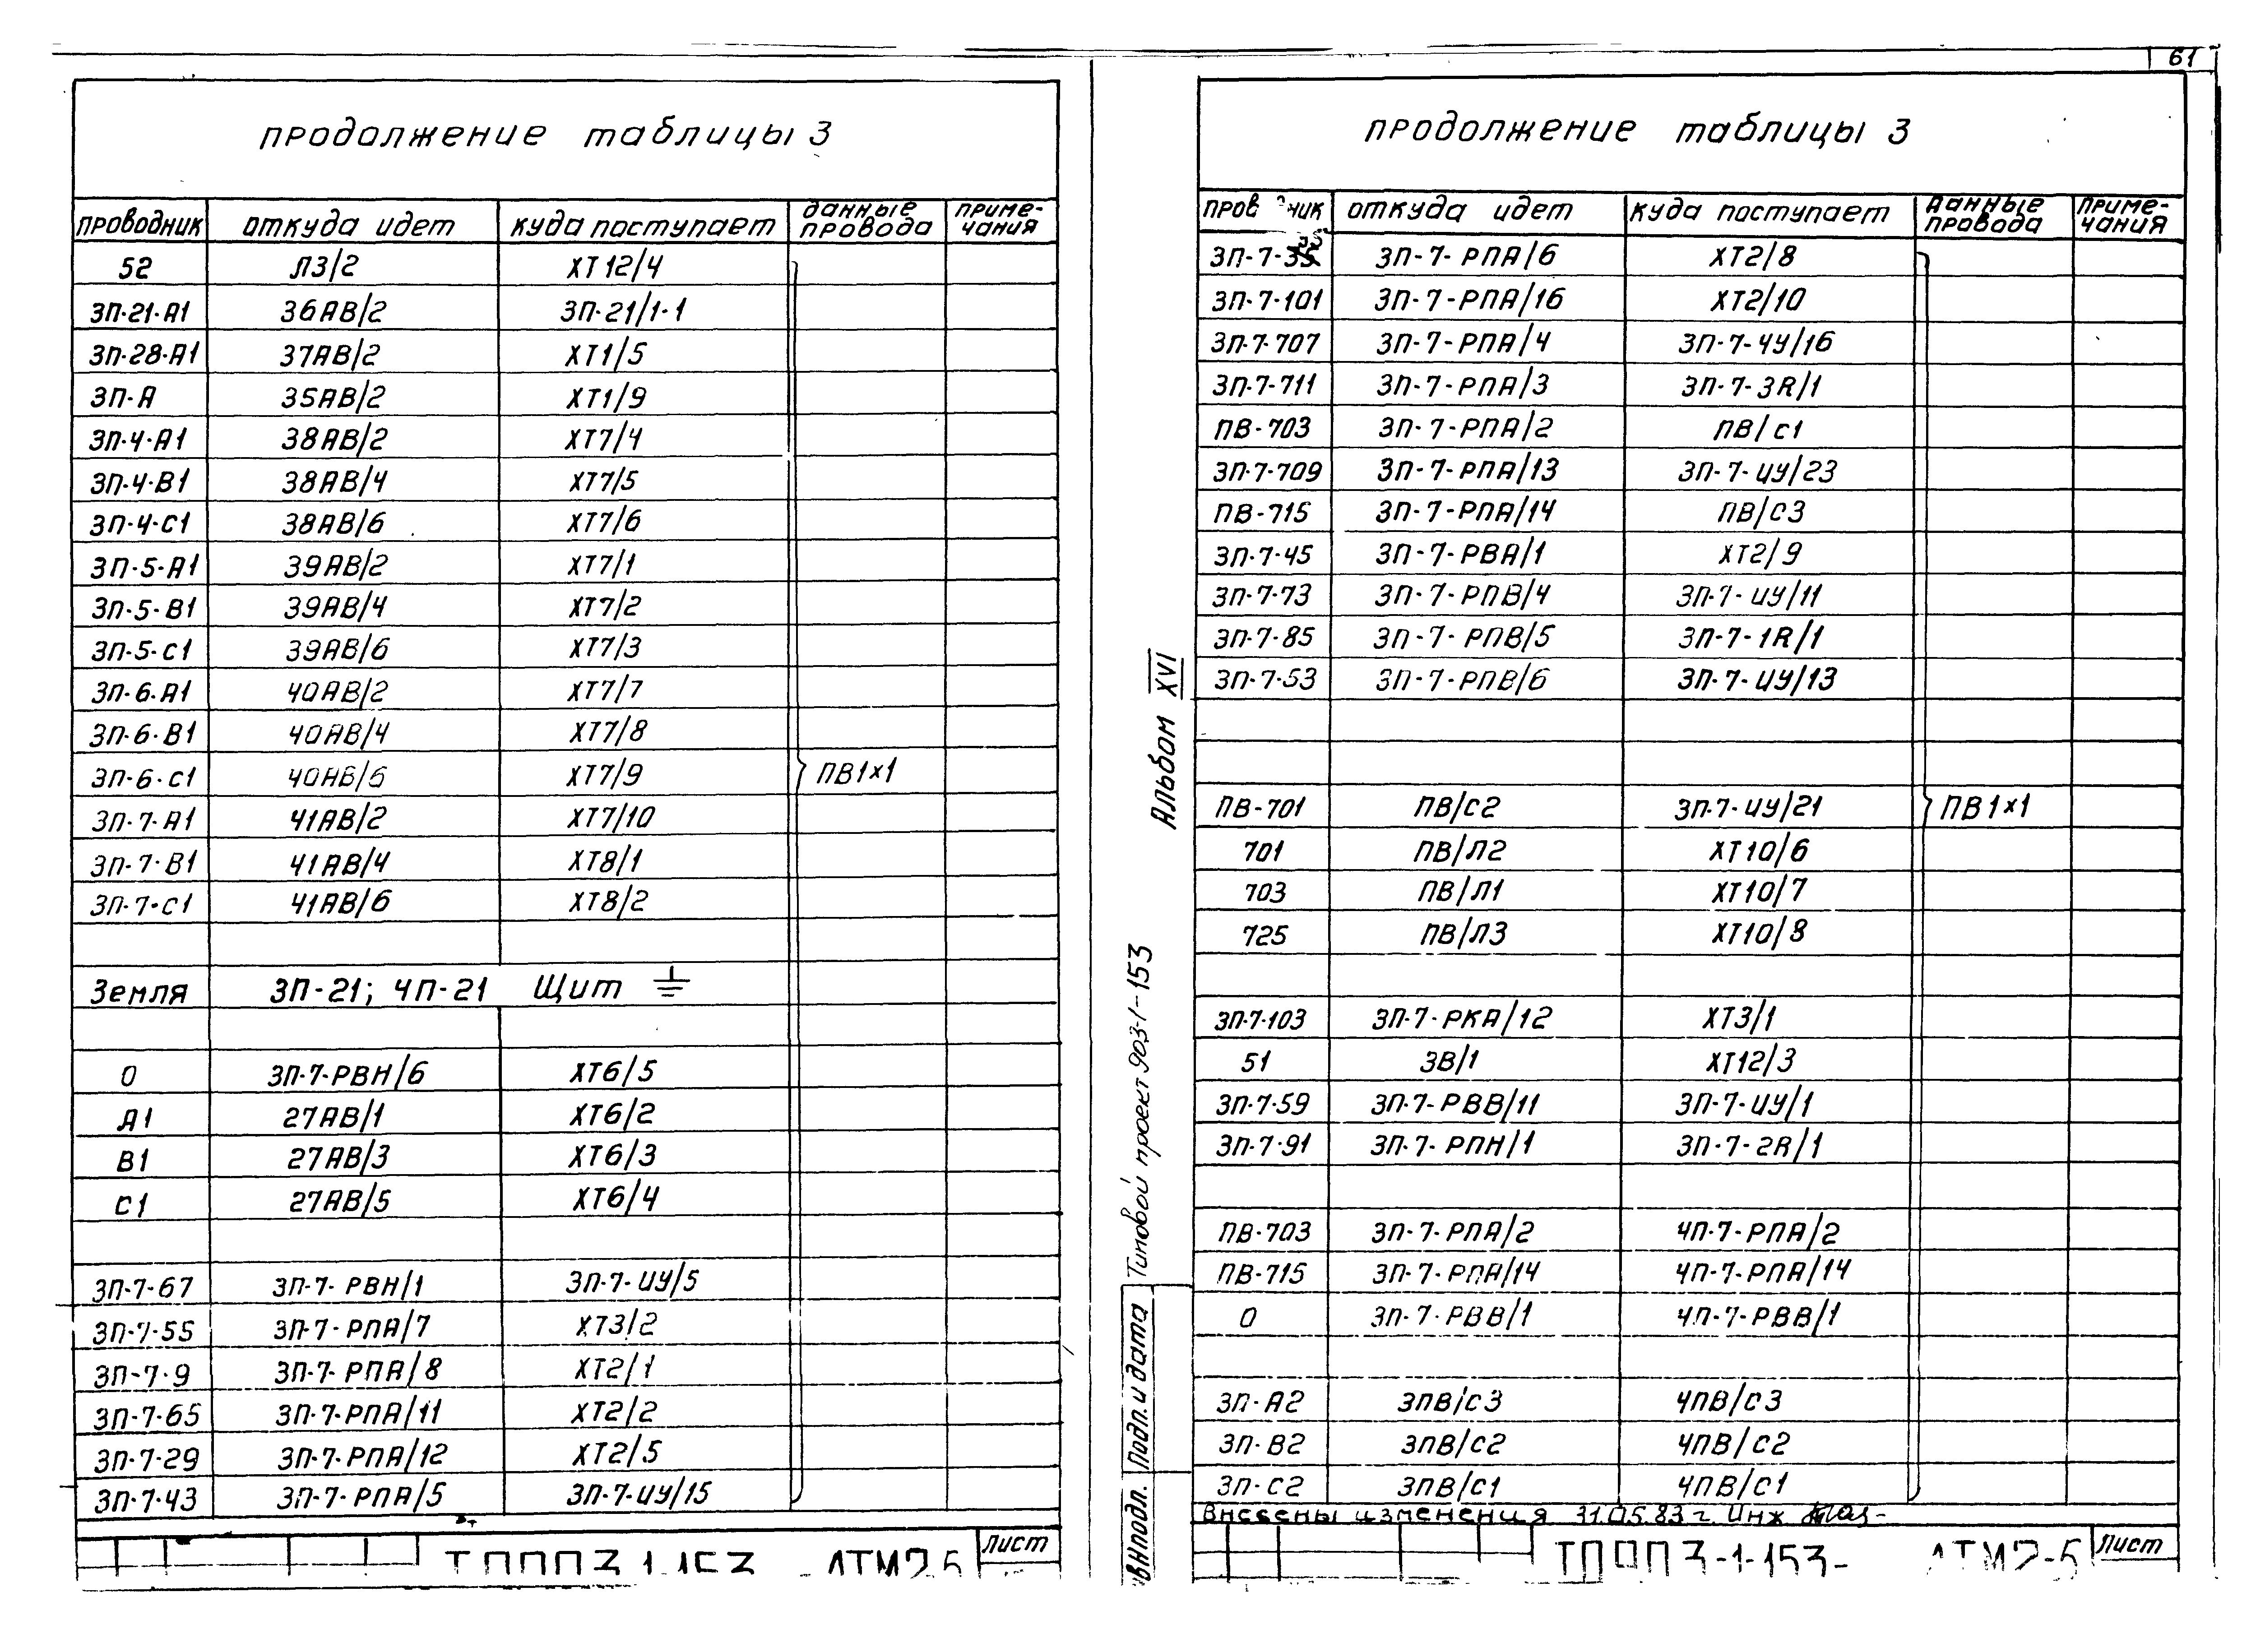 61
продолжение таблицы 3
проводник откуда идет куда поступает данные провода примечания
52 Л3/2 ХТ12/4
3П-21-А1 36АВ/2 3П-21/1-1
3П-28-А1 37АВ/2 ХТ1/5
3П-А 35АВ/2 ХТ1/9
3П-4-А1 38АВ/2 ХТ7/4
3П-4-В1 38АВ/4 ХТ7/5
3П-4-С1 38АВ/6 ХТ7/6
3П-5-А1 39АВ/2 ХТ7/1
3П-5-В1 39АВ/4 ХТ7/2
3П-5-С1 39АВ/6 ХТ7/3
3П-6-А1 40АВ/2 ХТ7/7
3П-6-В1 40АВ/4 ХТ7/8
3П-6-С1 40АВ/6 ХТ7/9 ПВ1×1
3П-7-А1 41АВ/2 ХТ7/10
3П-7-В1 41АВ/4 ХТ8/1
3П-7-С1 41АВ/6 ХТ8/2
Земля 3П-21; 4П-21 Щит ⏚
0 3П-7-РВН/6 ХТ6/5
А1 27АВ/1 ХТ6/2
В1 27АВ/3 ХТ6/3
С1 27АВ/5 ХТ6/4
3П-7-67 3П-7-РВН/1 3П-7-ИУ/5
3П-7-55 3П-7-РПА/7 ХТ3/2
3П-7-9 3П-7-РПА/8 ХТ2/1
3П-7-65 3П-7-РПА/11 ХТ2/2
3П-7-29 3П-7-РПА/12 ХТ2/5
3П-7-43 3П-7-РПА/5 3П-7-ИУ/15
Лист
Альбом XVI
Типовой проект 903-1-153
Подп. и дата
продолжение таблицы 3
откуда идет куда поступает данные провода примечания
3П-7- 3П-7-РПА/6 ХТ2/8
3П-7-101 3П-7-РПА/16 ХТ2/10
3П-7-707 3П-7-РПА/4 3П-7-ЧУ/16
3П-7-711 3П-7-РПА/3 3П-7-3R/1
ПВ-703 3П-7-РПА/2 ПВ/С1
3П-7-709 3П-7-РПА/13 3П-7-ИУ/23
ПВ-715 3П-7-РПА/14 ПВ/С3
3П-7-45 3П-7-РВА/1 ХТ2/9
3П-7-73 3П-7-РПВ/4 3П-7-ИУ/11
3П-7-85 3П-7-РПВ/5 3П-7-1R/1
3П-7-53 3П-7-РПВ/6 3П-7-ИУ/13
ПВ-701 ПВ/С2 3П-7-ИУ/21 ПВ1×1
701 ПВ/Л2 ХТ10/6
703 ПВ/Л1 ХТ10/7
725 ПВ/Л3 ХТ10/8
3П-7-103 3П-7-РКА/12 ХТ3/1
51 3В/1 ХТ12/3
3П-7-59 3П-7-РВВ/11 3П-7-ИУ/1
3П-7-91 3П-7-РПН/1 3П-7-2R/1
ПВ-703 3П-7-РПА/2 4П-7-РПА/2
ПВ-715 3П-7-РПА/14 4П-7-РПА/14
0 3П-7-РВВ/1 4П-7-РВВ/1
3П-А2 3ПВ/С3 4ПВ/С3
3П-В2 3ПВ/С2 4ПВ/С2
3П-С2 3ПВ/С1 4ПВ/С1
Внесены изменения 31.05.83 г. Инж
Лист